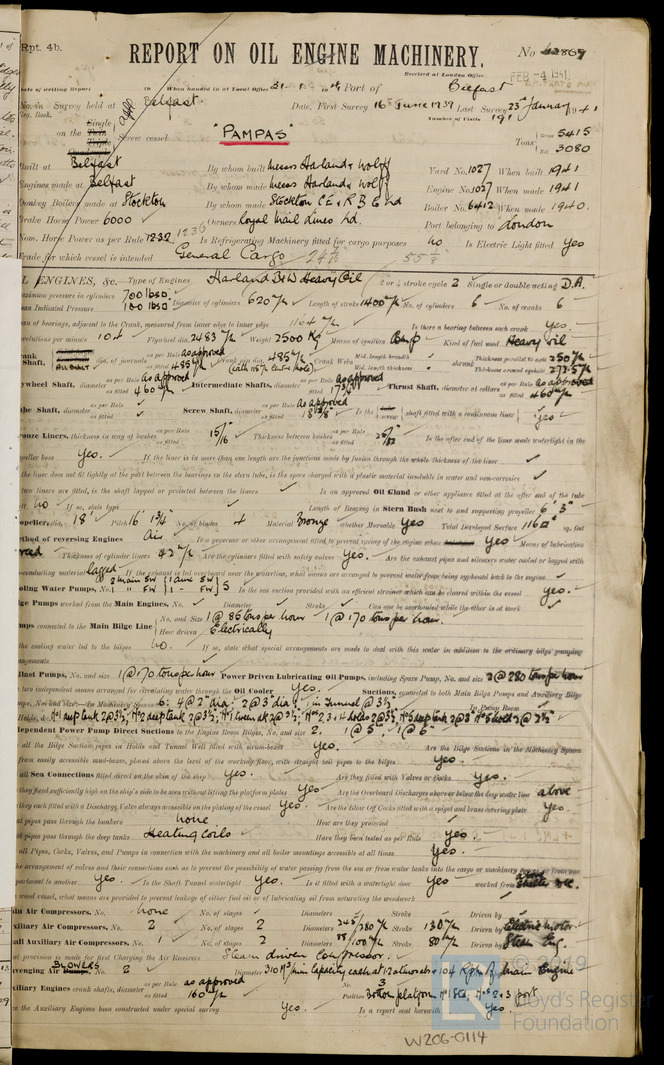 Rpt. 4b.
REPORT ON OIL ENGINE MACHINERY.
No 42869
Received at London Office
FEB -4 1941
Date of writing Report 19 When handed in at Local Office 31 - 1 - 19 41 Port of Belfast
No. in Survey held at Belfast. Date, First Survey 16th June 1939 Last Survey 23rd January 1941
Reg. Book. Number of Visits 191
Single
on the Twin
Triple
Quadruple
Screw vessel "PAMPAS"
Tons Gross 5415
Net 3080
Built at Belfast By whom built Messrs Harland & Wolff Yard No. 1027 When built 1941
Engines made at Belfast By whom made Messrs Harland & Wolff Engine No. 1027 When made 1941
Donkey Boilers made at Stockton By whom made Stockton C.E. & R B C Ltd Boiler No. 6412 When made 1940.
Brake Horse Power 6000 Owners Royal Mail Lines Ltd. Port belonging to London
Nom. Horse Power as per Rule 1232 1236 Is Refrigerating Machinery fitted for cargo purposes No Is Electric Light fitted Yes
Trade for which vessel is intended General Cargo
OIL ENGINES, &c. Type of Engines Harland B&W Heavy Oil 2 or 4 stroke cycle 2 Single or double acting D.A.
Maximum pressure in cylinders 700 lbs Diameter of cylinders 620 m/m Length of stroke 1400 m/m No. of cylinders 6 No. of cranks 6
Mean Indicated Pressure 100 lbs
Span of bearings, adjacent to the Crank, measured from inner edge to inner edge 1164 m/m Is there a bearing between each crank Yes.
Revolutions per minute 104 Flywheel dia. 2483 m/m Weight 2500 Kg Means of ignition Comp Kind of fuel used Heavy Oil
Crank Shaft, dia. of journals as per Rule as approved as fitted 485 m/m Crank pin dia. 485 m/m Crank Webs Mid. length breadth Mid. length thickness shrunk Thickness parallel to axis 250 m/m Thickness around eyehole 272.5 m/m
Flywheel Shaft, diameter as per Rule as approved as fitted 460 m/m Intermediate Shafts, diameter as per Rule as approved as fitted Thrust Shaft, diameter at collars as per Rule as approved as fitted 460 m/m
Tube Shaft, diameter as per Rule as fitted Screw Shaft, diameter as per Rule as approved as fitted Is the shaft fitted with a continuous liner Yes
Bronze Liners, thickness in way of bushes as per Rule as fitted 15/16 Thickness between bushes as per Rule as fitted Is the after end of the liner made watertight in the
propeller boss Yes. If the liner is in more than one length are the junctions made by fusion through the whole thickness of the liner
If the liner does not fit tightly at the part between the bearings in the stern tube, is the space charged with a plastic material insoluble in water and non-corrosive
If two liners are fitted, is the shaft lapped or protected between the liners Is an approved Oil Gland or other appliance fitted at the after end of the tube
shaft. No If so, state type Length of Bearing in Stern Bush next to and supporting propeller 6' 3"
Propeller, dia. 18' Pitch 16' 1 3/4" No. of blades 4 Material Bronze whether Moveable Yes Total Developed Surface 116 sq. feet
Method of reversing Engines Air Is a governor or other arrangement fitted to prevent racing of the engine when Yes Means of lubrication
forced Thickness of cylinder liners 42 m/m Are the cylinders fitted with safety valves Yes. Are the exhaust pipes and silencers water cooled or lagged with
non-conducting material lagged If the exhaust is led overboard near the waterline, what means are arranged to prevent water from being syphoned back to the engine
Cooling Water Pumps, No. 2 main SW 1 aux SW Is the sea suction provided with an efficient strainer which can be cleared within the vessel Yes.
Bilge Pumps worked from the Main Engines, No. Diameter Stroke Can one be overhauled while the other is at work
Pumps connected to the Main Bilge Line No. and Size 1 @ 85 tons per hour 1 @ 170 tons per hour.
How driven Electrically
Is the cooling water led to the bilges No. If so, state what special arrangements are made to deal with this water in addition to the ordinary bilge pumping
arrangements
Ballast Pumps, No. and size. 1 @ 170 tons per hour Power Driven Lubricating Oil Pumps, including Spare Pump, No. and size 2 @ 280 tons per hour
Are two independent means arranged for circulating water through the Oil Cooler Yes. Suctions, connected to both Main Bilge Pumps and Auxiliary Bilge
Pumps, No. and size:- In Machinery Spaces 6: 4 @ 2" dia: 2 @ 3" dia: 1 in tunnel @ 3 1/2 In Pump Room
In Holds, &c. No 1 deep tank 2 @ 3 1/2, No 2 deep tank 2 @ 3 1/2, No 1 tween dk 2 @ 3 1/2, Nos 2, 3 & 4 holds 2 @ 3 1/2, No 5 deep tank 2 @ 3" No 5 hold 2 @ 2 1/2
Independent Power Pump Direct Suctions to the Engine Room Bilges, No. and size 2. 1 @ 5" 1 @ 6"
Are all the Bilge Suction pipes in Holds and Tunnel Well fitted with strum-boxes Yes. Are the Bilge Suctions in the Machinery Spaces
led from easily accessible mud-boxes, placed above the level of the working floor, with straight tail pipes to the bilges Yes.
Are all Sea Connections fitted direct on the skin of the ship Yes. Are they fitted with Valves or Cocks Yes.
Are they fixed sufficiently high on the ship's side to be seen without lifting the platform plates Yes. Are the Overboard Discharges above or below the deep water line above
Are they each fitted with a Discharge Valve always accessible on the plating of the vessel Yes. Are the Blow Off Cocks fitted with a spigot and brass covering plate Yes
What pipes pass through the bunkers None How are they protected
What pipes pass through the deep tanks Heating Coils Have they been tested as per Rule Yes.
Are all Pipes, Cocks, Valves, and Pumps in connection with the machinery and all boiler mountings accessible at all times Yes.
Is the arrangement of valves and their connections such as to prevent the possibility of water passing from the sea or from water tanks into the cargo or machinery spaces or from one
compartment to another Yes. Is the Shaft Tunnel watertight Yes. Is it fitted with a watertight door Yes worked from
If a wood vessel, what means are provided to prevent leakage of either fuel oil or of lubricating oil from saturating the woodwork
Main Air Compressors, No. None No. of stages Diameters Stroke Driven by
Auxiliary Air Compressors, No. 2 No. of stages 2 Diameters 325/280 m/m Stroke 130 m/m Driven by Electric motor
Small Auxiliary Air Compressors, No. 1 No. of stages 2 Diameters 88/100 m/m Stroke 80 m/m Driven by Steam Eng.
What provision is made for first Charging the Air Receivers Steam driven compressor.
Scavenging Air BLOWERS No. 2 Diameter 310 M3/min capacity each at 104 Rpm of Main Engine
Auxiliary Engines crank shafts, diameter as per Rule as approved as fitted 160 m/m No. 3 Position Bottom platform No 1 Stb. Nos 2 & 3 port
Have the Auxiliary Engines been constructed under special survey Yes. Is a report sent herewith Yes.
W206-0114
© 2019
Lloyd's Register
Foundation